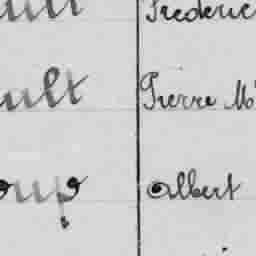 Frederic
ult Pierre M
oup Albert